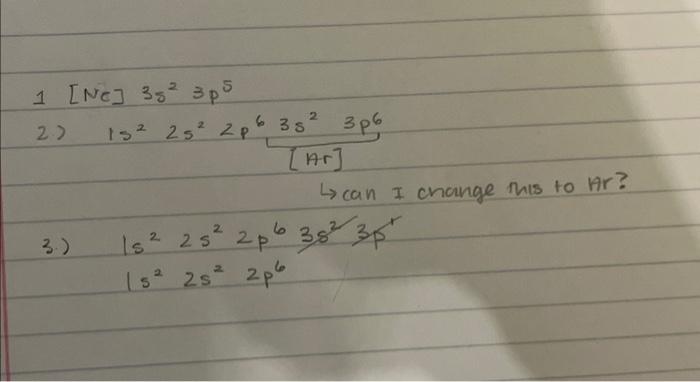 1 [Ne] 3s² 3p⁵
2.) 1s² 2s² 2p⁶ 3s² 3p⁶
[Ar]
↳ can I change this to Ar?
3.) 1s² 2s² 2p⁶ 3s² 3p¹
1s² 2s² 2p⁶